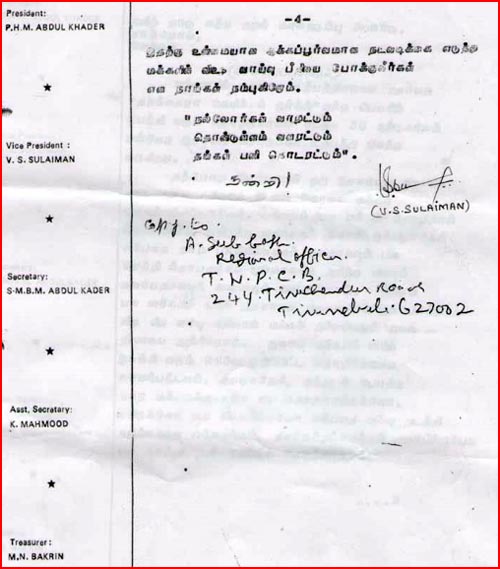 President:
P.H.M. ABDUL KHADER
★
Vice President :
V. S. SULAIMAN
★
Secretary:
S.M.B.M. ABDUL KADER
★
Asst, Secretary:
K. MAHMOOD
★
Treasurer:
M.N. BAKRIN
-4-
இதற்கு உண்மையான ஆக்கப்பூர்வமான நடவடிக்கை எடுத்து
மக்களின் விஷ வாயு பீதியை போக்குவீர்கள்
என நாங்கள் நம்புகிறோம்.
"நல்லோர்கள் வாழட்டும்
தொண்டுள்ளம் வளரட்டும்
தங்கள் பணி தொடரட்டும்".
நன்றி!
(V.S.SULAIMAN)
Copy to
A.
Regional Officer
T. N. P. C. B.
244. Tiruchendur Road
Tirunelveli. 627002